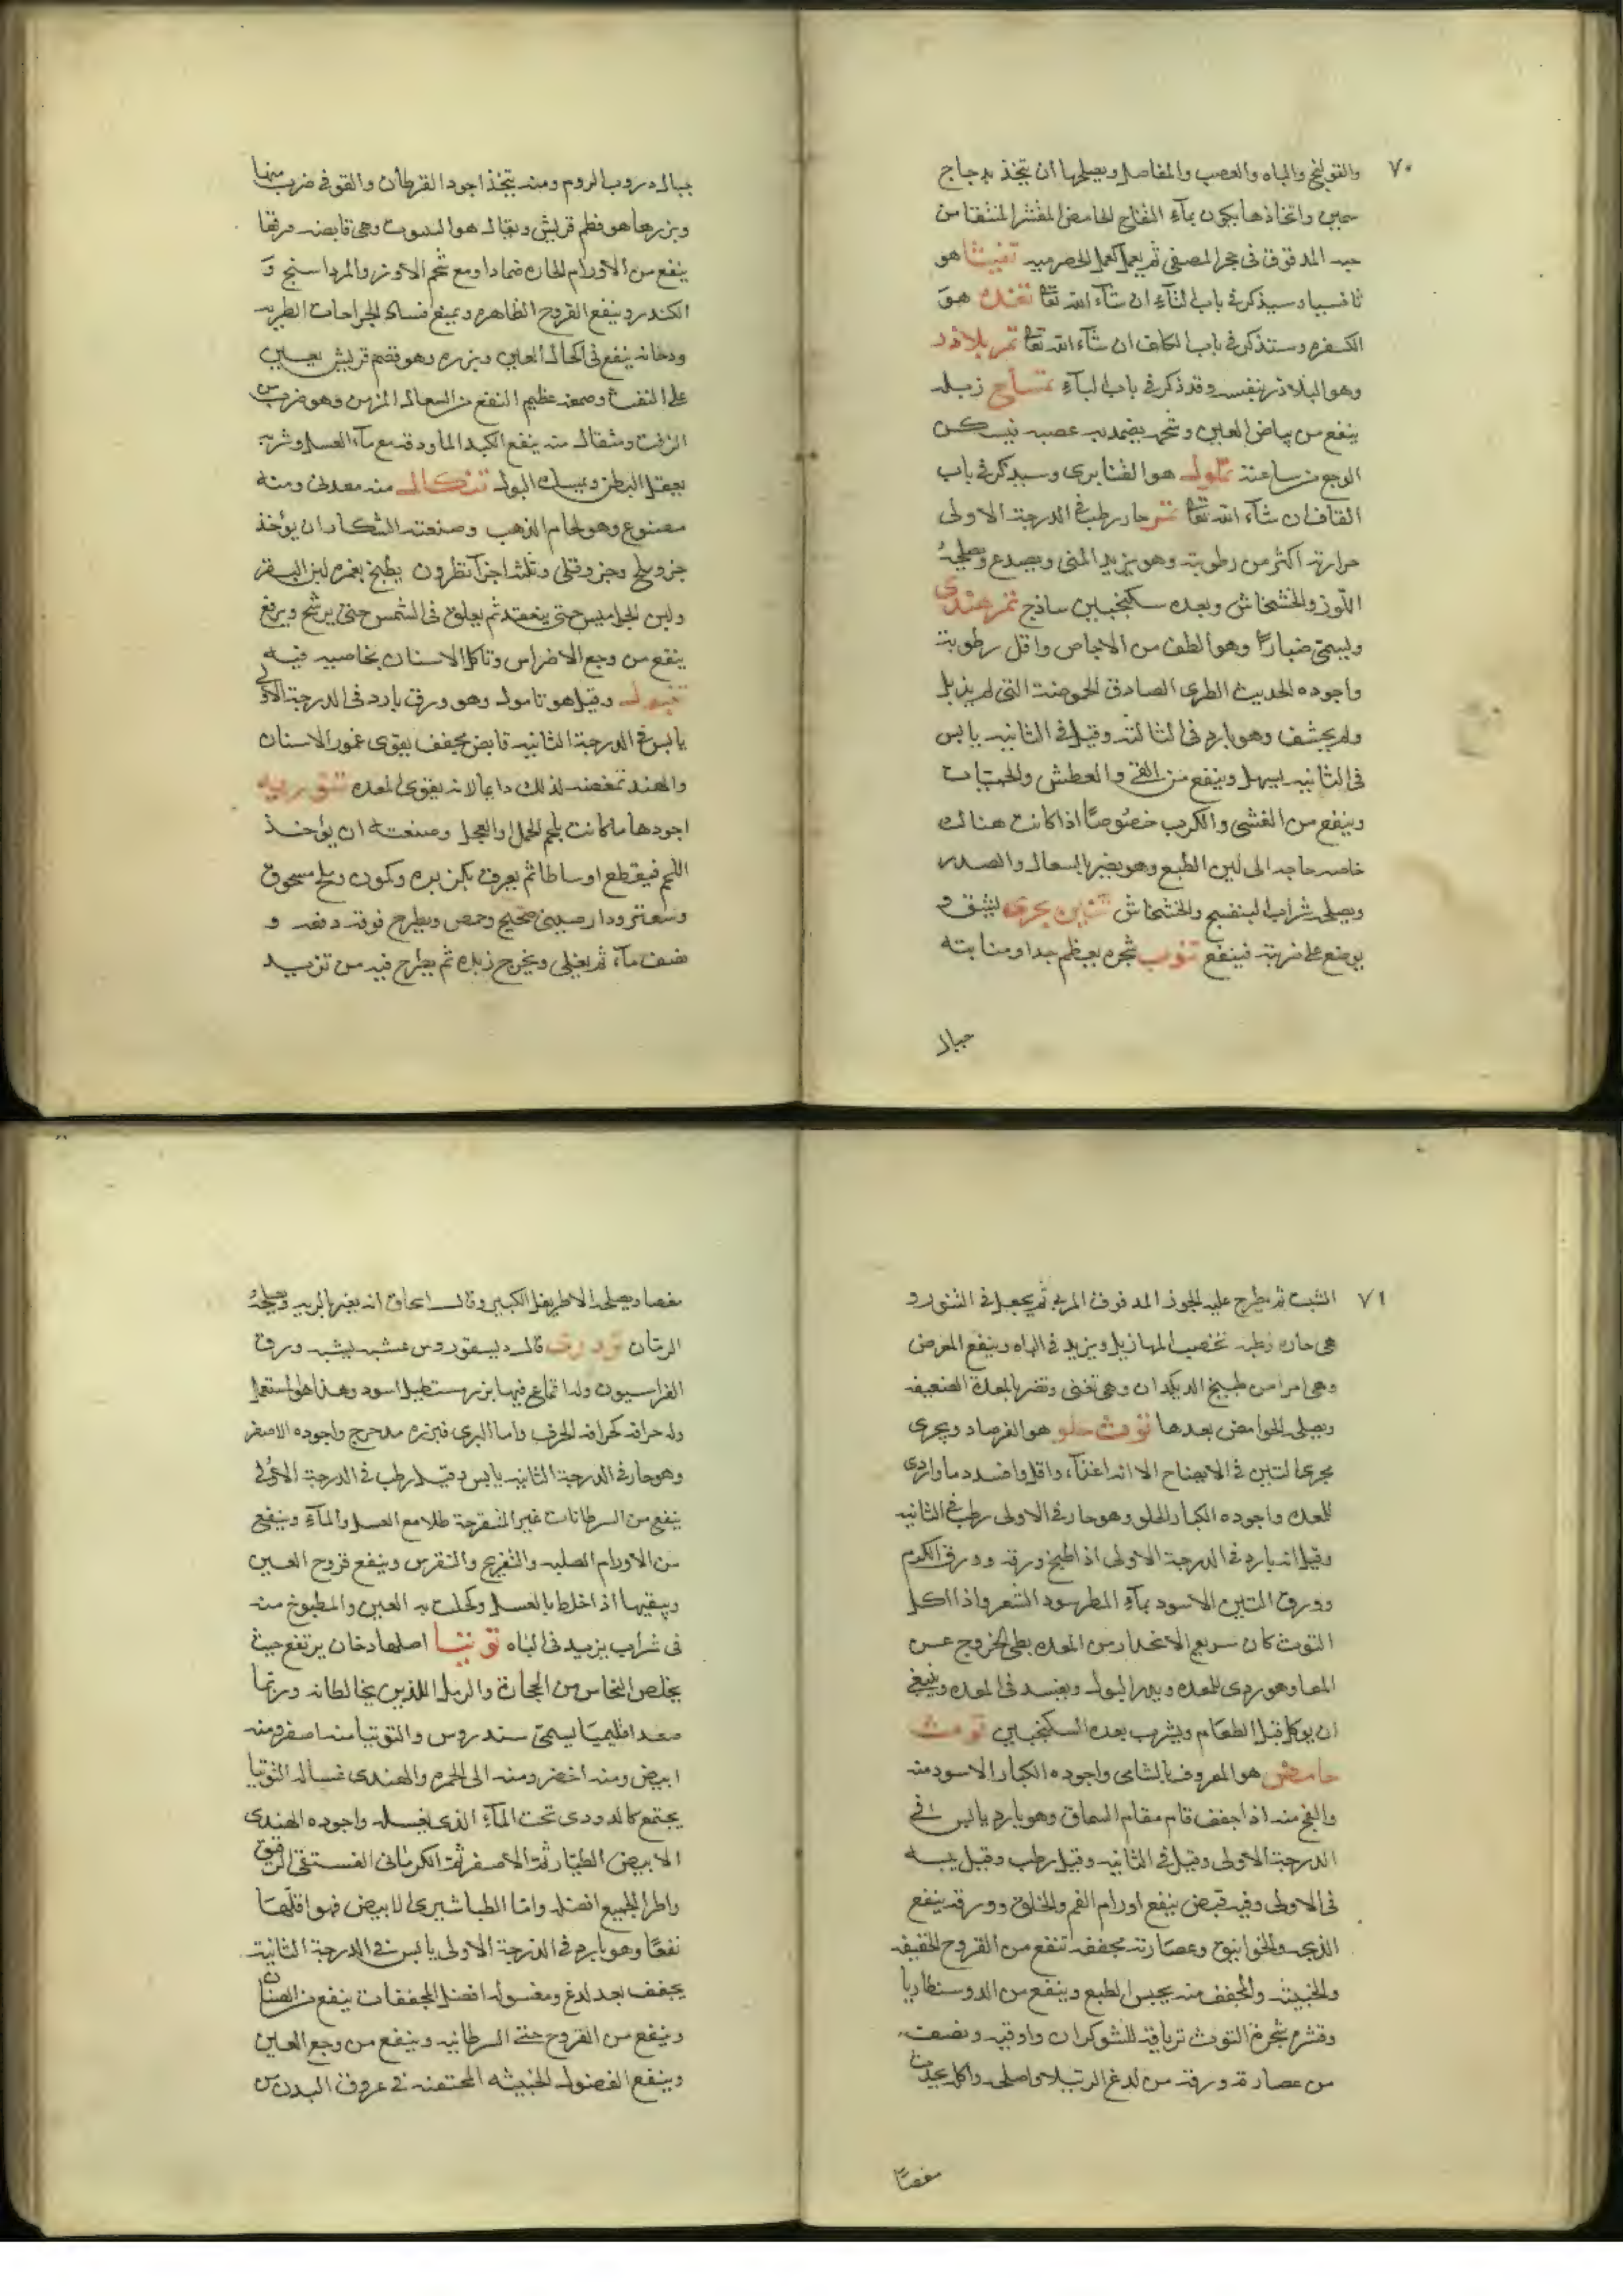 ٧٠
والقولنج والباه والعصب والمفاصل ويصلحها ان يتخذ بدجاج
سمين واتخاذها يكون بماء التفاح الحامض المقشر المنقا من
حبه المدقوق في حجر المصفى ثم يعمل كعمل الحصرميه تفيثا هو
ثافسيا وسيذكر في باب الثاء ان شاء الله تعالى تغنده هو
الكسفره وستذكر في باب الكاف ان شاء الله تعالى تمر بلاذر
وهو البلاذر بنفسه وقد ذكر في باب الباء تمساح زبله
ينفع من بياض العين وشحمه يضمد به عصبه فيسكن
الوجع من ساعته تملول هو القنابرى وسيذكر في باب
القاف ان شاء الله تعالى تمر حار رطب في الدرجة الاولى
حرارته اكثر من رطوبته وهو يزيد المنى ويصدع ويصلحه
اللوز والخشخاش وبعده سكنجبين ساذج تمر هندى
ويسمى ضبارا وهو الطف من الاجاص واقل رطوبة
واجوده الحديث الطرى الصادق الحموضة التي لم يذبل
ولم يحشف وهو بارد في الثالثة وقيل في الثانيه يابس
في الثانيه يسهل وينفع من القئ والعطش والحميات
وينفع من الغشى والكرب خصوصا اذا كانت هناك
خاصه حاجه الى لين الطبع وهو يضر بالسعال والصدر
ويصلحه شراب البنفسج والخشخاش تنين بحرى ليشق و
يوضع على ضربته فينفع تنوب شجره يعظم جدا ومنابته
جبال
جبال دروب الروم ومنه يتخذ اجود القطران والقوفي ضرب منها
وبزرها هو قضم قريش ويقال هو وهى قابضه ورقها
ينفع من الاورام الحاره ضمادا ومع شحم الاوز والمرداسنج و
الكندر وينفع القروح الظاهره ويمنع فساد الجراحات الطريه
ودخانه ينفع في اكحال العين وبزره وهو قضم قريش يعين
على النفث وصمغه عظيم النفع من السعال المزمن وهو ضرب من
الزفت ومثقال منه ينفع الكبد الماودقه مع ماء العسل وشربه
يعقل البطن ويمسك البول تنكال منه معدنى ومنه
مصنوع وهو لحام الذهب وصنعته التنكار ان يؤخذ
جزو ملح وجزو قلى وثلثه اجزآ نطرون يطبخ بغمره لبن البقر
ولبن الجواميس حتى ينعقد ثم يعلق في الشمس حتى يرشح ويرفع
ينفع من وجع الاضراس وتاكل الاسنان بخاصيه فيه
تنبول وقيل هو تامول وهو ورق بارد في الدرجة الاولى
يابس في الدرجة الثانيه قابض مجفف يقوى عمور الاسنان
والهند تمضغه لذلك دايما لانه يقوى المعده تنوريه
اجودها ما كانت بلحم الحمل والعجل وصنعته ان يؤخذ
اللحم فيقطع اوساطا ثم يعرق بكزبره وكمون وملح مسحوق
وسعتر ودارصينى صحيح وحمص ويطرح فوقه دفعه و
نصف ماء ثم يغلى ويخرج زبده ثم يطرح فيه من تزبيد
٧١
الشبت ثم يطرح عليه الجوز المدقوق المربى ثم يجعل في التنور و
هى حاره رطبه تخصب المهازيل ويزيد في الباه وينفع المعرض
وهى امرا من طبيخ الديكدان وهى تغنى وتضر بالمعدة الضعيفه
ويصلحه الحوامض بعدها توث حلو هو الفرصاد ويجرى
مجرى التين في الانضاج الا انه اغذاء واقل وافسد دما واردى
للمعده واجوده الكبار الحلو وهو حار في الاولى رطب في الثانيه
وقيل انه بارد في الدرجة الاولى اذا طبخ ورقه وورق الكرم
وورق التين الاسود بماء المطر سود الشعر واذا اكل
التوث كان سريع الانحدار من المعده بطى الخروج عن
المعا وهو ردى للمعده ويدر البول ويفسد في المعده وينبغى
ان يوكل قبل الطعام ويشرب بعده السكنجبين توث
حامض هو المعروف بالشامى واجوده الكبار الاسود منه
والفج منه اذا جفف قام مقام السماق وهو بارد يابس في
الدرجة الاولى وقيل في الثانيه وقيل رطب وقيل يبسه
في الاولى وفيه قبض ينفع اورام الفم والحلق وورقه ينفع
الذبحه والخوانيق وعصارته مجففه تنفع من القروح الخفيفه
والخبيثه والمجفف منه يحبس الطبع وينفع من الدوسنطاريا
وقشر شجرة التوث ترياقه للشوكران واوقيه ونصف
من عصارة ورقه من لدغ الرتيلا واصلحه واكله يحدث
مغصا
مغصا ويصلحه الاطريفل الكبير وقال اسحاق انه يضر بالريه ويصلحه
الرمان تودرى قال ديسقوردوس عشبه يشبه ورق
الفراسيون ولها فيها بزر مستطيل اسود وهذا هو المستعمل
وله حرافه كحرافه الحرف واما البرى فبزره مدحرج واجوده الاصفر
وهو حار في الدرجة الثانيه يابس وقيل رطب في الدرجة الاولى
ينفع من السرطانات غير المتقرحة طلا مع العسل والماء وينفع
من الاورام الصلبه والنقرس وينفع قروح العين
وينقيها اذا خلط بالعسل وكحلت به العين والمطبوخ منه
في شراب يزيد في الباه توتيا اصلها دخان يرتفع حيث
يخلص النحاس من الحجارة والرمل اللذين يخالطانه وربما
صعد اقليميا يسمى سندروس والتوتيا منه اصفر ومنه
ابيض ومنه اخضر ومنه الى الحمره والهندى غساله التوتيا
يجتمع كالدودى تحت الماء الذى يغسله واجوده الهندى
الابيض الطيار ثم الاصفر ثم الكرمانى الفستقى الرقيق
واطرا الجميع افضله واما الطباشيرى الابيض فهو اقلها
نفعا وهو بارد في الدرجة الاولى يابس في الدرجة الثانية
يجفف بجد لدغ ومغسوله افضل المجففات ينفع من الصنان
وينفع من القروح حتى السرطانيه وينفع من وجع العين
وينفع الفضول الخبيثه المحتقنه في عروق البدن من